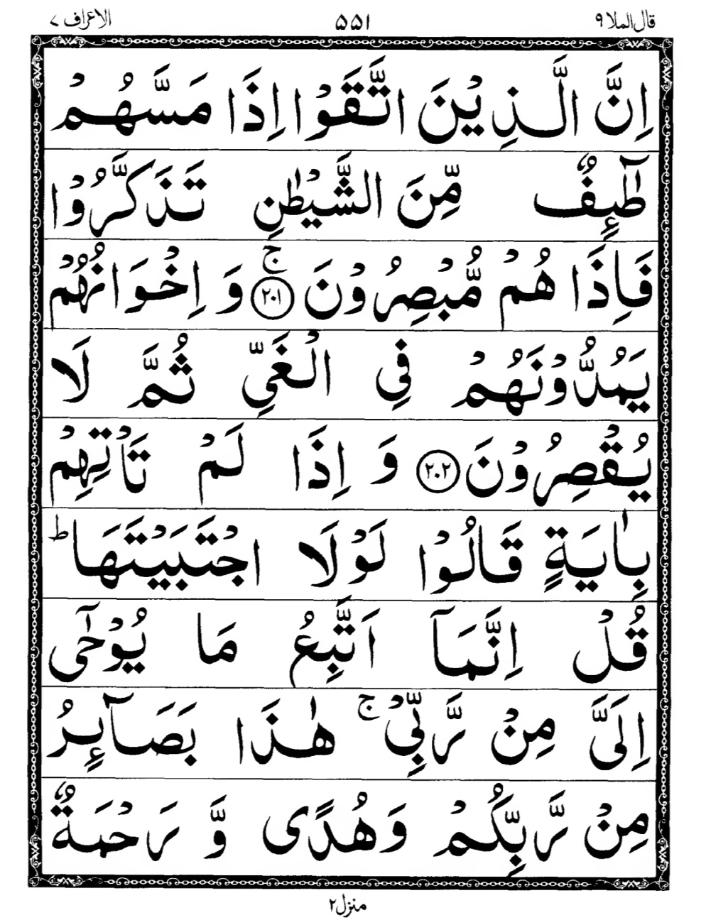 قال الملا ۹ ۵۵۱ الاعراف ۷
اِنَّ الَّذِيْنَ اتَّقَوْا اِذَا مَسَّهُمْ
طٰٓئِفٌ مِّنَ الشَّيْطٰنِ تَذَكَّرُوْا
فَاِذَا هُمْ مُّبْصِرُوْنَ ۚ ﴿۲۰۱﴾ وَ اِخْوَانُهُمْ
يَمُدُّوْنَهُمْ فِي الْغَيِّ ثُمَّ لَا
يُقْصِرُوْنَ ﴿۲۰۲﴾ وَ اِذَا لَمْ تَاْتِهِمْ
بِاٰيَةٍ قَالُوْا لَوْلَا اجْتَبَيْتَهَا ؕ
قُلْ اِنَّمَاۤ اَتَّبِعُ مَا يُوْحٰۤى
اِلَيَّ مِنْ رَّبِّيْ ۚ هٰذَا بَصَآئِرُ
مِنْ رَّبِّكُمْ وَهُدًى وَّ رَحْمَةٌ
منزل ۲